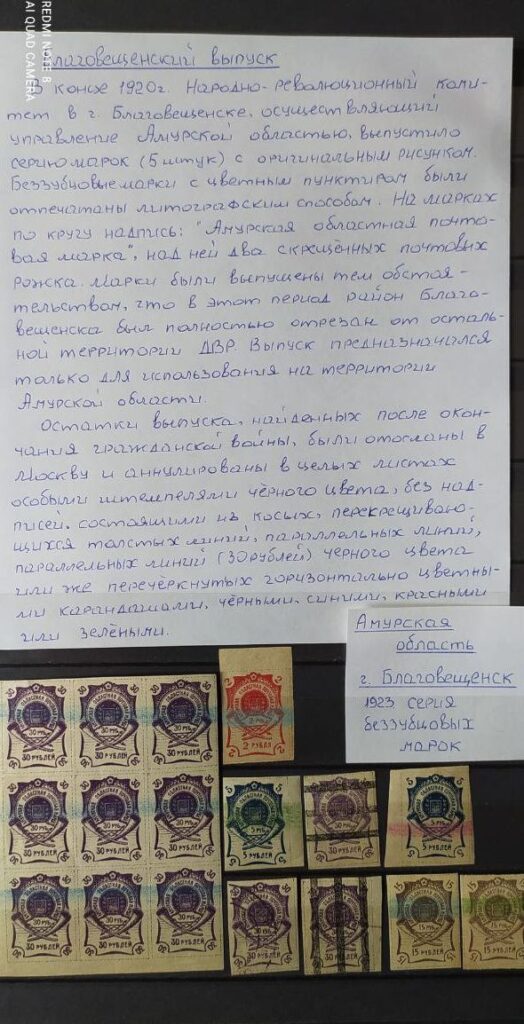 Благовещенский выпуск
В конце 1920г. Народно-революционный коми-
тет в г. Благовещенске, осуществляющий
управление Амурской областью, выпустило
серию марок (5 штук) с оригинальным рисунком.
Беззубцовые марки с цветным пунктиром были
отпечатаны литографским способом. На марках
по кругу надпись: "Амурская областная почто-
вая марка", над ней два скрещённых почтовых
рожска. Марки были выпущены тем обстоя-
тельством, что в этот период район Благо-
вещенска был полностью отрезан от осталь-
ной территории ДВР. Выпуск предназначался
только для использования на территории
Амурской области.
Остатки выпуска, найденных после окон-
чания гражданской войны, были отосланы в
Москву и аннулированы в целых листах
особыми штемпелями чёрного цвета, без над-
писей, состоящими из косых, перекрещиваю-
щихся толстых линий, параллельных линий,
параллельных линий (30 рублей) чёрного цвета
или же перечёркнутых горизонтально цветны-
ми карандашами, чёрными, синими, красными
или зелёными.
Амурская
область
г. Благовещенск
1923 серия
беззубцовых
марок
REDMI NOTE 8
AI QUAD CAMERA
30 РУБЛЕЙ
30 РУБЛЕЙ
30 РУБЛЕЙ
2 РУБЛЯ
30 РУБЛЕЙ
30 РУБЛЕЙ
30 РУБЛЕЙ
5 РУБЛЕЙ
30 РУБЛЕЙ
5 РУБЛЕЙ
30 РУБЛЕЙ
30 РУБЛЕЙ
30 РУБЛЕЙ
30 РУБЛЕЙ
30 РУБЛЕЙ
15 РУБЛЕЙ
15 РУБЛЕЙ